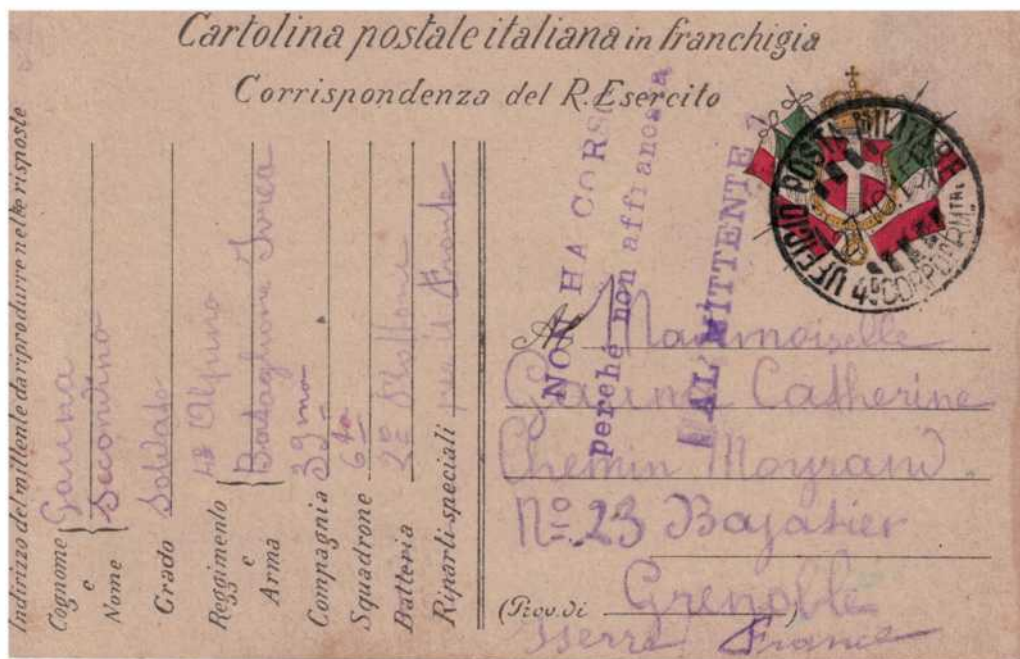 Cartolina postale italiana in franchigia
Corrispondenza del R. Esercito
Indirizzo del mittente da riprodurre nelle risposte
Cognome e Nome
Secondino
Grado Soldato
Reggimento e Arma
Battaglione Ivrea
Compagnia 39 mo
Squadrone 6to
Batteria 2o
Riparti speciali per il
NON HA CORSO
perchè non affrancata
AL MITTENTE
UFFICIO POSTA MILITARE
4° CORPO ARM
A Mademoiselle
Catherine
Chemin Moyrand
No. 23 Bajatier
(Prov. di Grenoble)
Iserre France